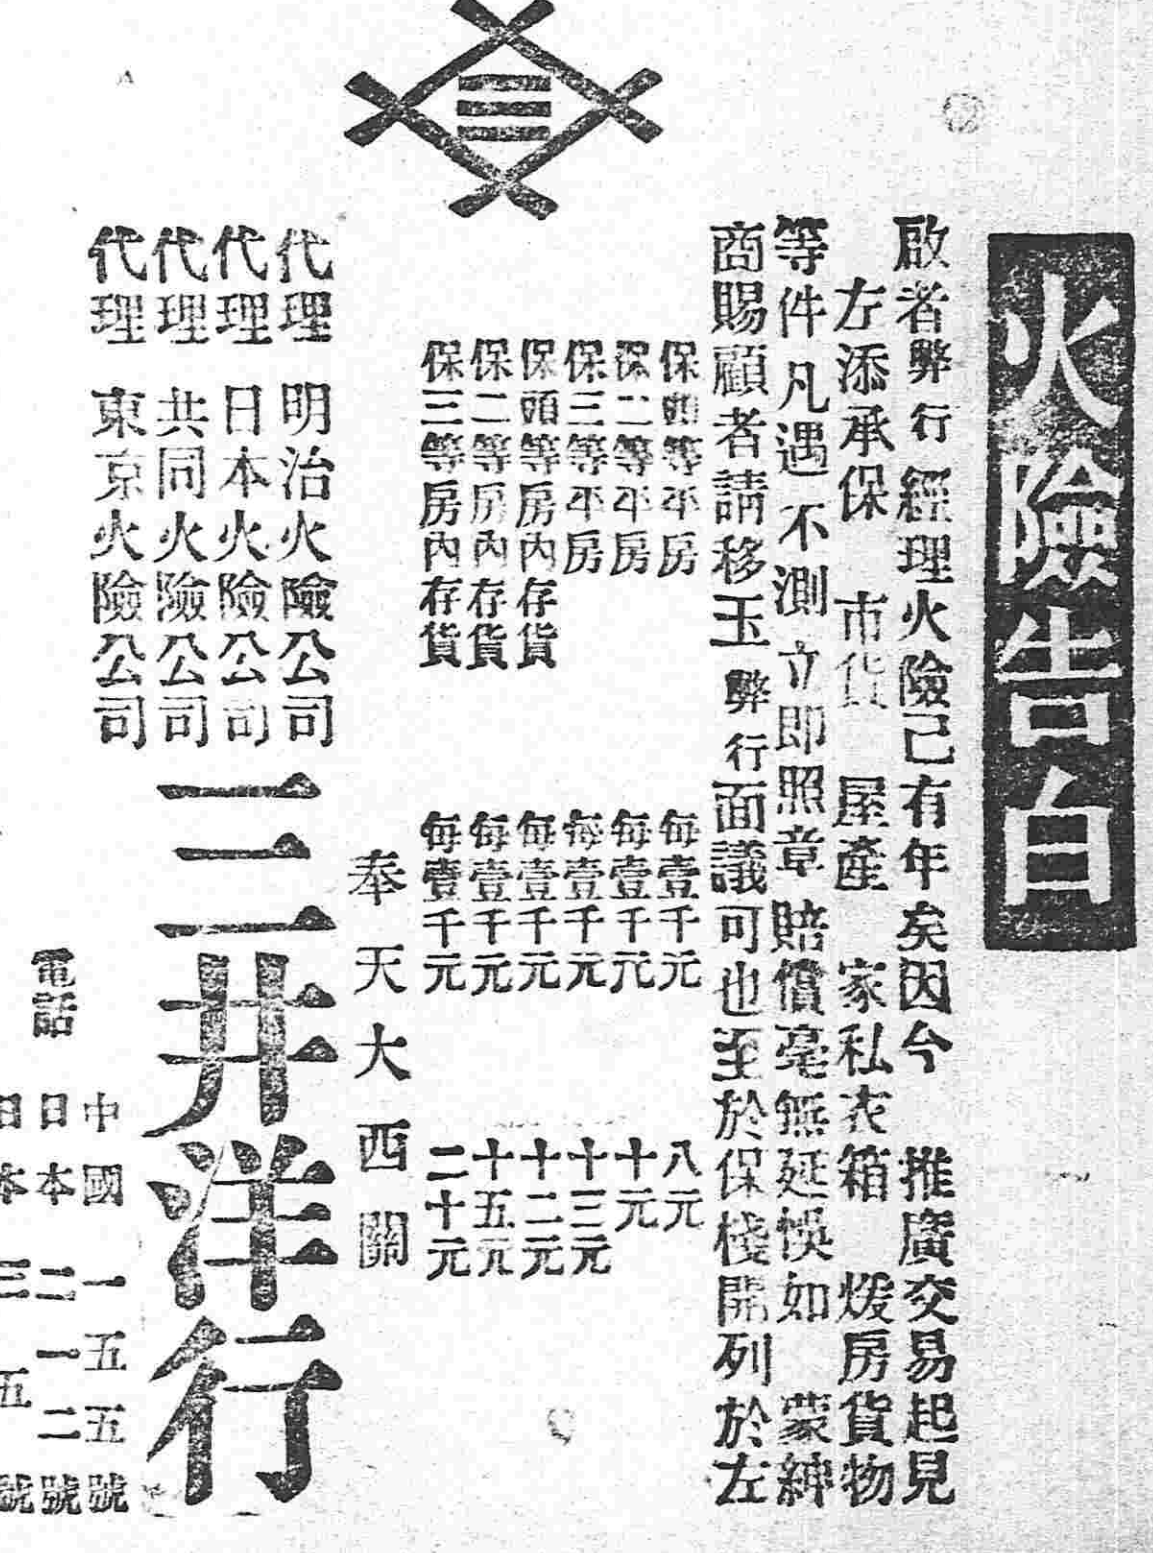 火險告白
啟者弊行經理火險己有年矣因今 推廣交易起見
左添承保 市貨 屋產 家私衣箱 煖房貨物
等件凡遇不測立即照章賠償毫無延悞如 蒙紳
商賜顧者請移玉弊行面議可也至於保棧開列於左
保頭等平房 每壹千元 八元
保二等平房 每壹千元 十元
保三等平房 每壹千元 十三元
保頭等房內存貨 每壹千元 十二元
保二等房內存貨 每壹千元 十五元
保三等房內存貨 每壹千元 二十元
奉天大西關
代理 明治火險公司
代理 日本火險公司
代理 共同火險公司
代理 東京火險公司
三井洋行
電話
中國 一五五號
日本 二一二號
日本 三五號